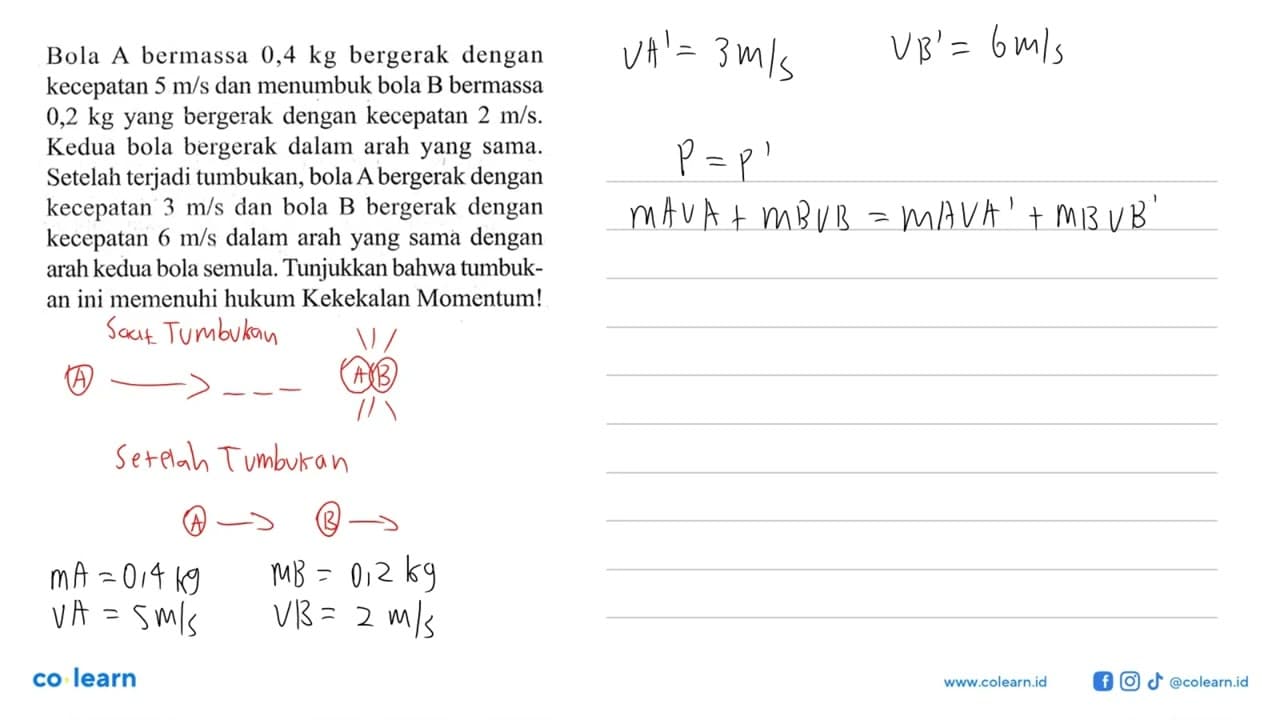 Bola A bermassa 0,4 kg bergerak dengan
kecepatan 5 m/s dan menumbuk bola B bermassa
0,2 kg yang bergerak dengan kecepatan 2 m/s.
Kedua bola bergerak dalam arah yang sama.
Setelah terjadi tumbukan, bola A bergerak dengan
kecepatan 3 m/s dan bola B bergerak dengan
kecepatan 6 m/s dalam arah yang sama dengan
arah kedua bola semula. Tunjukkan bahwa tumbuk-
an ini memenuhi hukum Kekekalan Momentum!
Saat Tumbukan
A A B
Setelah Tumbukan
A B
mA = 0,4 kg mB = 0,2 kg
vA = 5 m/s vB = 2 m/s
vA' = 3 m/s vB' = 6 m/s
P = P'
mAvA + mBvB = mAvA' + mBvB'
co learn
www.colearn.id @colearn.id